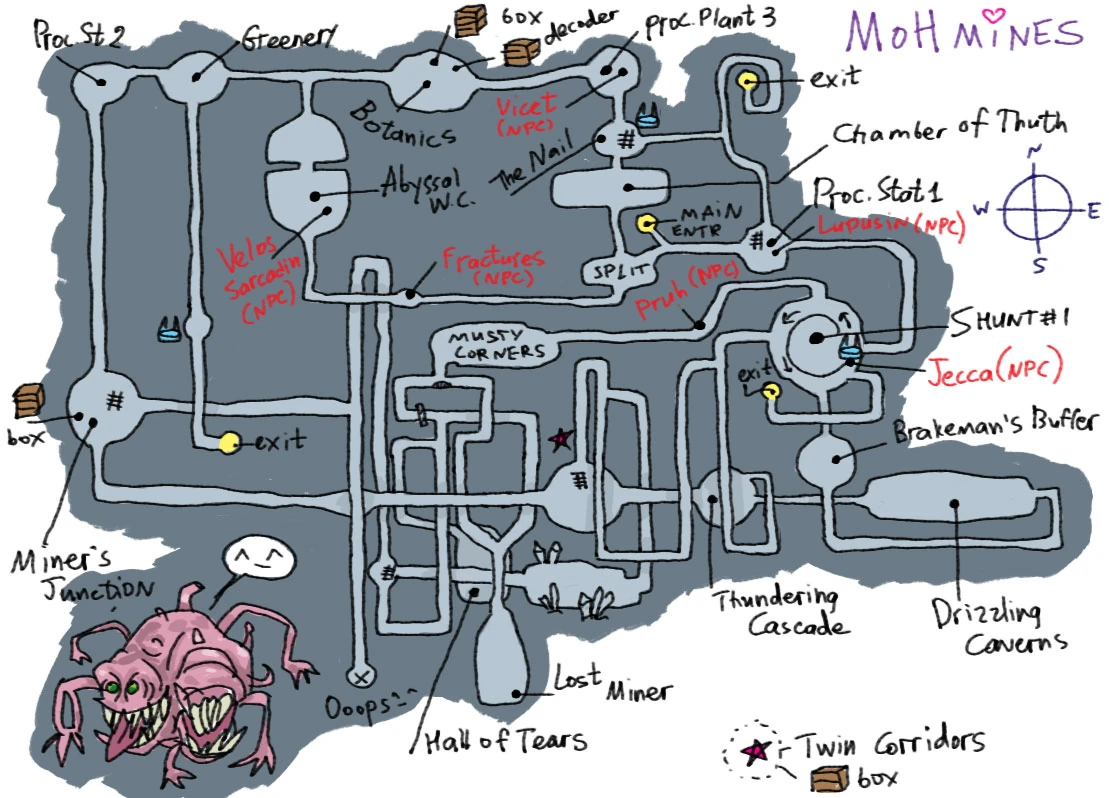 MOH MINES
Proc. St 2
Greenery
box
decoder
Proc. Plant 3
exit
Botanics
Vicet
(NPC)
The Nail
#
Chamber of Thuth
N
W
E
S
Abyssal
W.C.
MAIN
ENTR
Proc. Stat 1
#
Lupusin (NPC)
Velos
Sarcadin
(NPC)
Fractures
(NPC)
SPLIT
Pruh (NPC)
MUSTY
CORNERS
SHUNT #1
exit
Jecca (NPC)
#
box
exit
Brakeman's Buffer
#
Miner's
Junction
^_^
#
Thundering
Cascade
Drizzling
Caverns
X
Ooops^^
Lost Miner
Hall of Tears
Twin Corridors
box